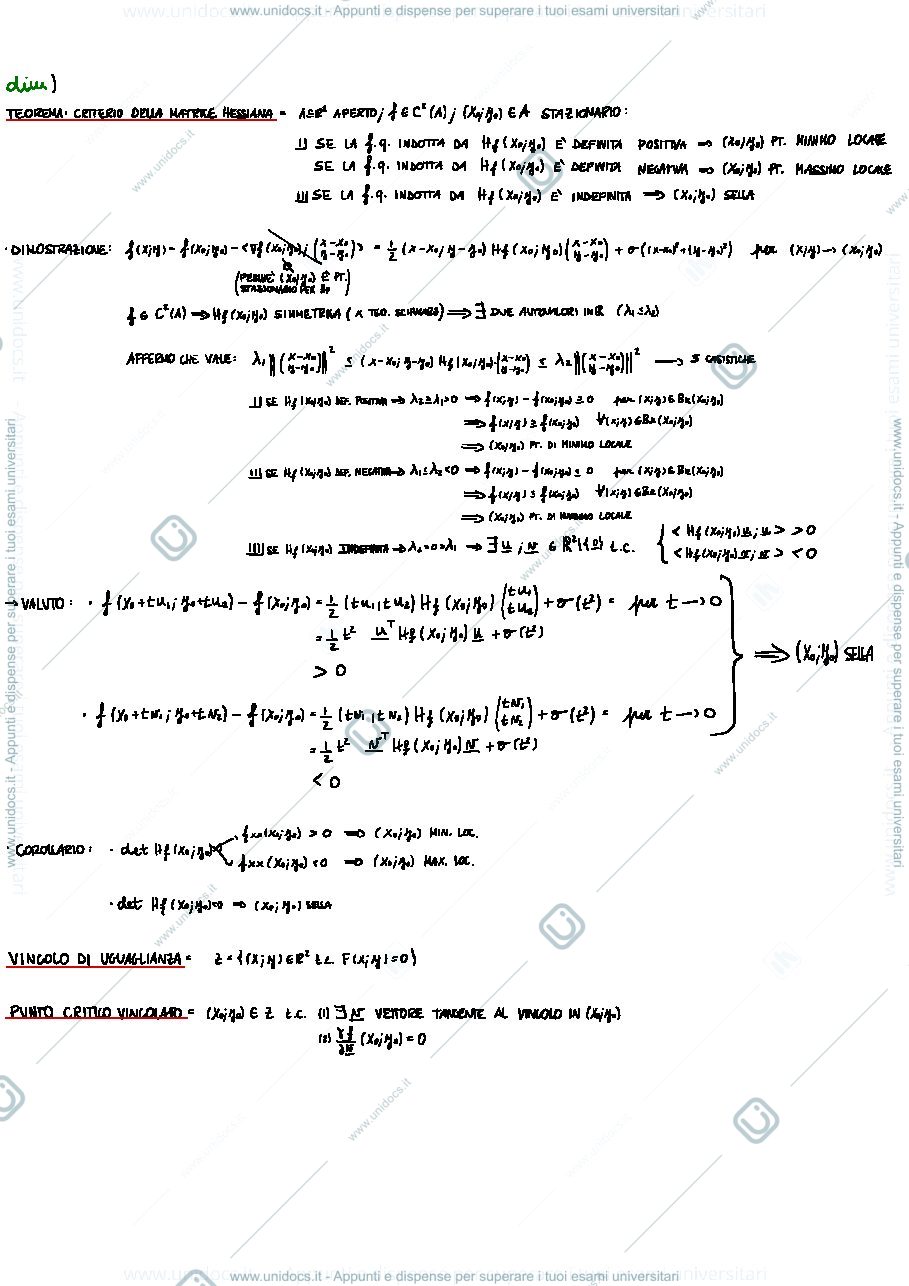 www.unidocs.it - Appunti e dispense per superare i tuoi esami universitari
dim)
TEOREMA: CRITERIO DELLA MATRICE HESSIANA = A⊆R² APERTO; f ∈ C²(A); (x₀;y₀) ∈ A STAZIONARIO:
I) SE LA f.q. INDOTTA DA Hf(x₀;y₀) E' DEFINITA POSITIVA ⇒ (x₀;y₀) PT. MINIMO LOCALE
SE LA f.q. INDOTTA DA Hf(x₀;y₀) E' DEFINITA NEGATIVA ⇒ (x₀;y₀) PT. MASSIMO LOCALE
II) SE LA f.q. INDOTTA DA Hf(x₀;y₀) E' INDEFINITA ⇒ (x₀;y₀) SELLA
· DIMOSTRAZIONE: f(x;y) - f(x₀;y₀) - <∇f(x₀;y₀); (x-x₀ y-y₀)> = 1/2 (x-x₀, y-y₀) Hf(x₀;y₀) (x-x₀ y-y₀) + σ((x-x₀)²+(y-y₀)²) per (x;y) → (x₀;y₀)
0
(PERCHE' (x₀;y₀) E' PT. STAZIONARIO PER Hp)
f ∈ C²(A) ⇒ Hf(x₀;y₀) SIMMETRICA (x TEO. SCHWARZ) ⇒ ∃ DUE AUTOVALORI IN R (λ₁≤λ₂)
AFFERMO CHE VALE: λ₁‖(x-x₀ y-y₀)‖² ≤ (x-x₀; y-y₀) Hf(x₀;y₀)·(x-x₀ y-y₀) ≤ λ₂‖(x-x₀ y-y₀)‖² → 3 CASISTICHE
I) SE Hf(x₀;y₀) DEF. POSITIVA ⇒ λ₂≥λ₁>0 ⇒ f(x;y) - f(x₀;y₀) ≥ 0 per (x;y)∈BR(x₀;y₀)
⇒ f(x;y) ≥ f(x₀;y₀) ∀(x;y)∈BR(x₀;y₀)
⇒ (x₀;y₀) PT. DI MINIMO LOCALE
II) SE Hf(x₀;y₀) DEF. NEGATIVA ⇒ λ₁≤λ₂<0 ⇒ f(x;y) - f(x₀;y₀) ≤ 0 per (x;y)∈BR(x₀;y₀)
⇒ f(x;y) ≤ f(x₀;y₀) ∀(x;y)∈BR(x₀;y₀)
⇒ (x₀;y₀) PT. DI MASSIMO LOCALE
III) SE Hf(x₀;y₀) INDEFINITA ⇒ λ₂>0>λ₁ ⇒ ∃ u; v ∈ R²\{0} t.c. { <Hf(x₀;y₀)u; u> > 0
<Hf(x₀;y₀)v; v> < 0
→ VALUTO: · f(x₀+tu₁; y₀+tu₂) - f(x₀;y₀) = 1/2 (tu₁; tu₂) Hf(x₀;y₀) (tu₁ tu₂) + σ(t²) = per t → 0
= 1/2 t² uᵀ Hf(x₀;y₀) u + σ(t²)
> 0
⇒ (x₀;y₀) SELLA
· f(x₀+tv₁; y₀+tv₂) - f(x₀;y₀) = 1/2 (tv₁; tv₂) Hf(x₀;y₀) (tv₁ tv₂) + σ(t²) = per t → 0
= 1/2 t² vᵀ Hf(x₀;y₀) v + σ(t²)
< 0
· COROLLARIO: · det Hf(x₀;y₀)
fxx(x₀;y₀) > 0 ⇒ (x₀;y₀) MIN. LOC.
fxx(x₀;y₀) < 0 ⇒ (x₀;y₀) MAX. LOC.
· det Hf(x₀;y₀)<0 ⇒ (x₀;y₀) SELLA
VINCOLO DI UGUAGLIANZA = Z = {(x;y)∈R² t.c. F(x;y)=0}
PUNTO CRITICO VINCOLATO = (x₀;y₀) ∈ Z t.c. (1) ∃ v VETTORE TANGENTE AL VINCOLO IN (x₀;y₀)
(2) ∂f/∂v (x₀;y₀) = 0
www.unidocs.it - Appunti e dispense per superare i tuoi esami universitari